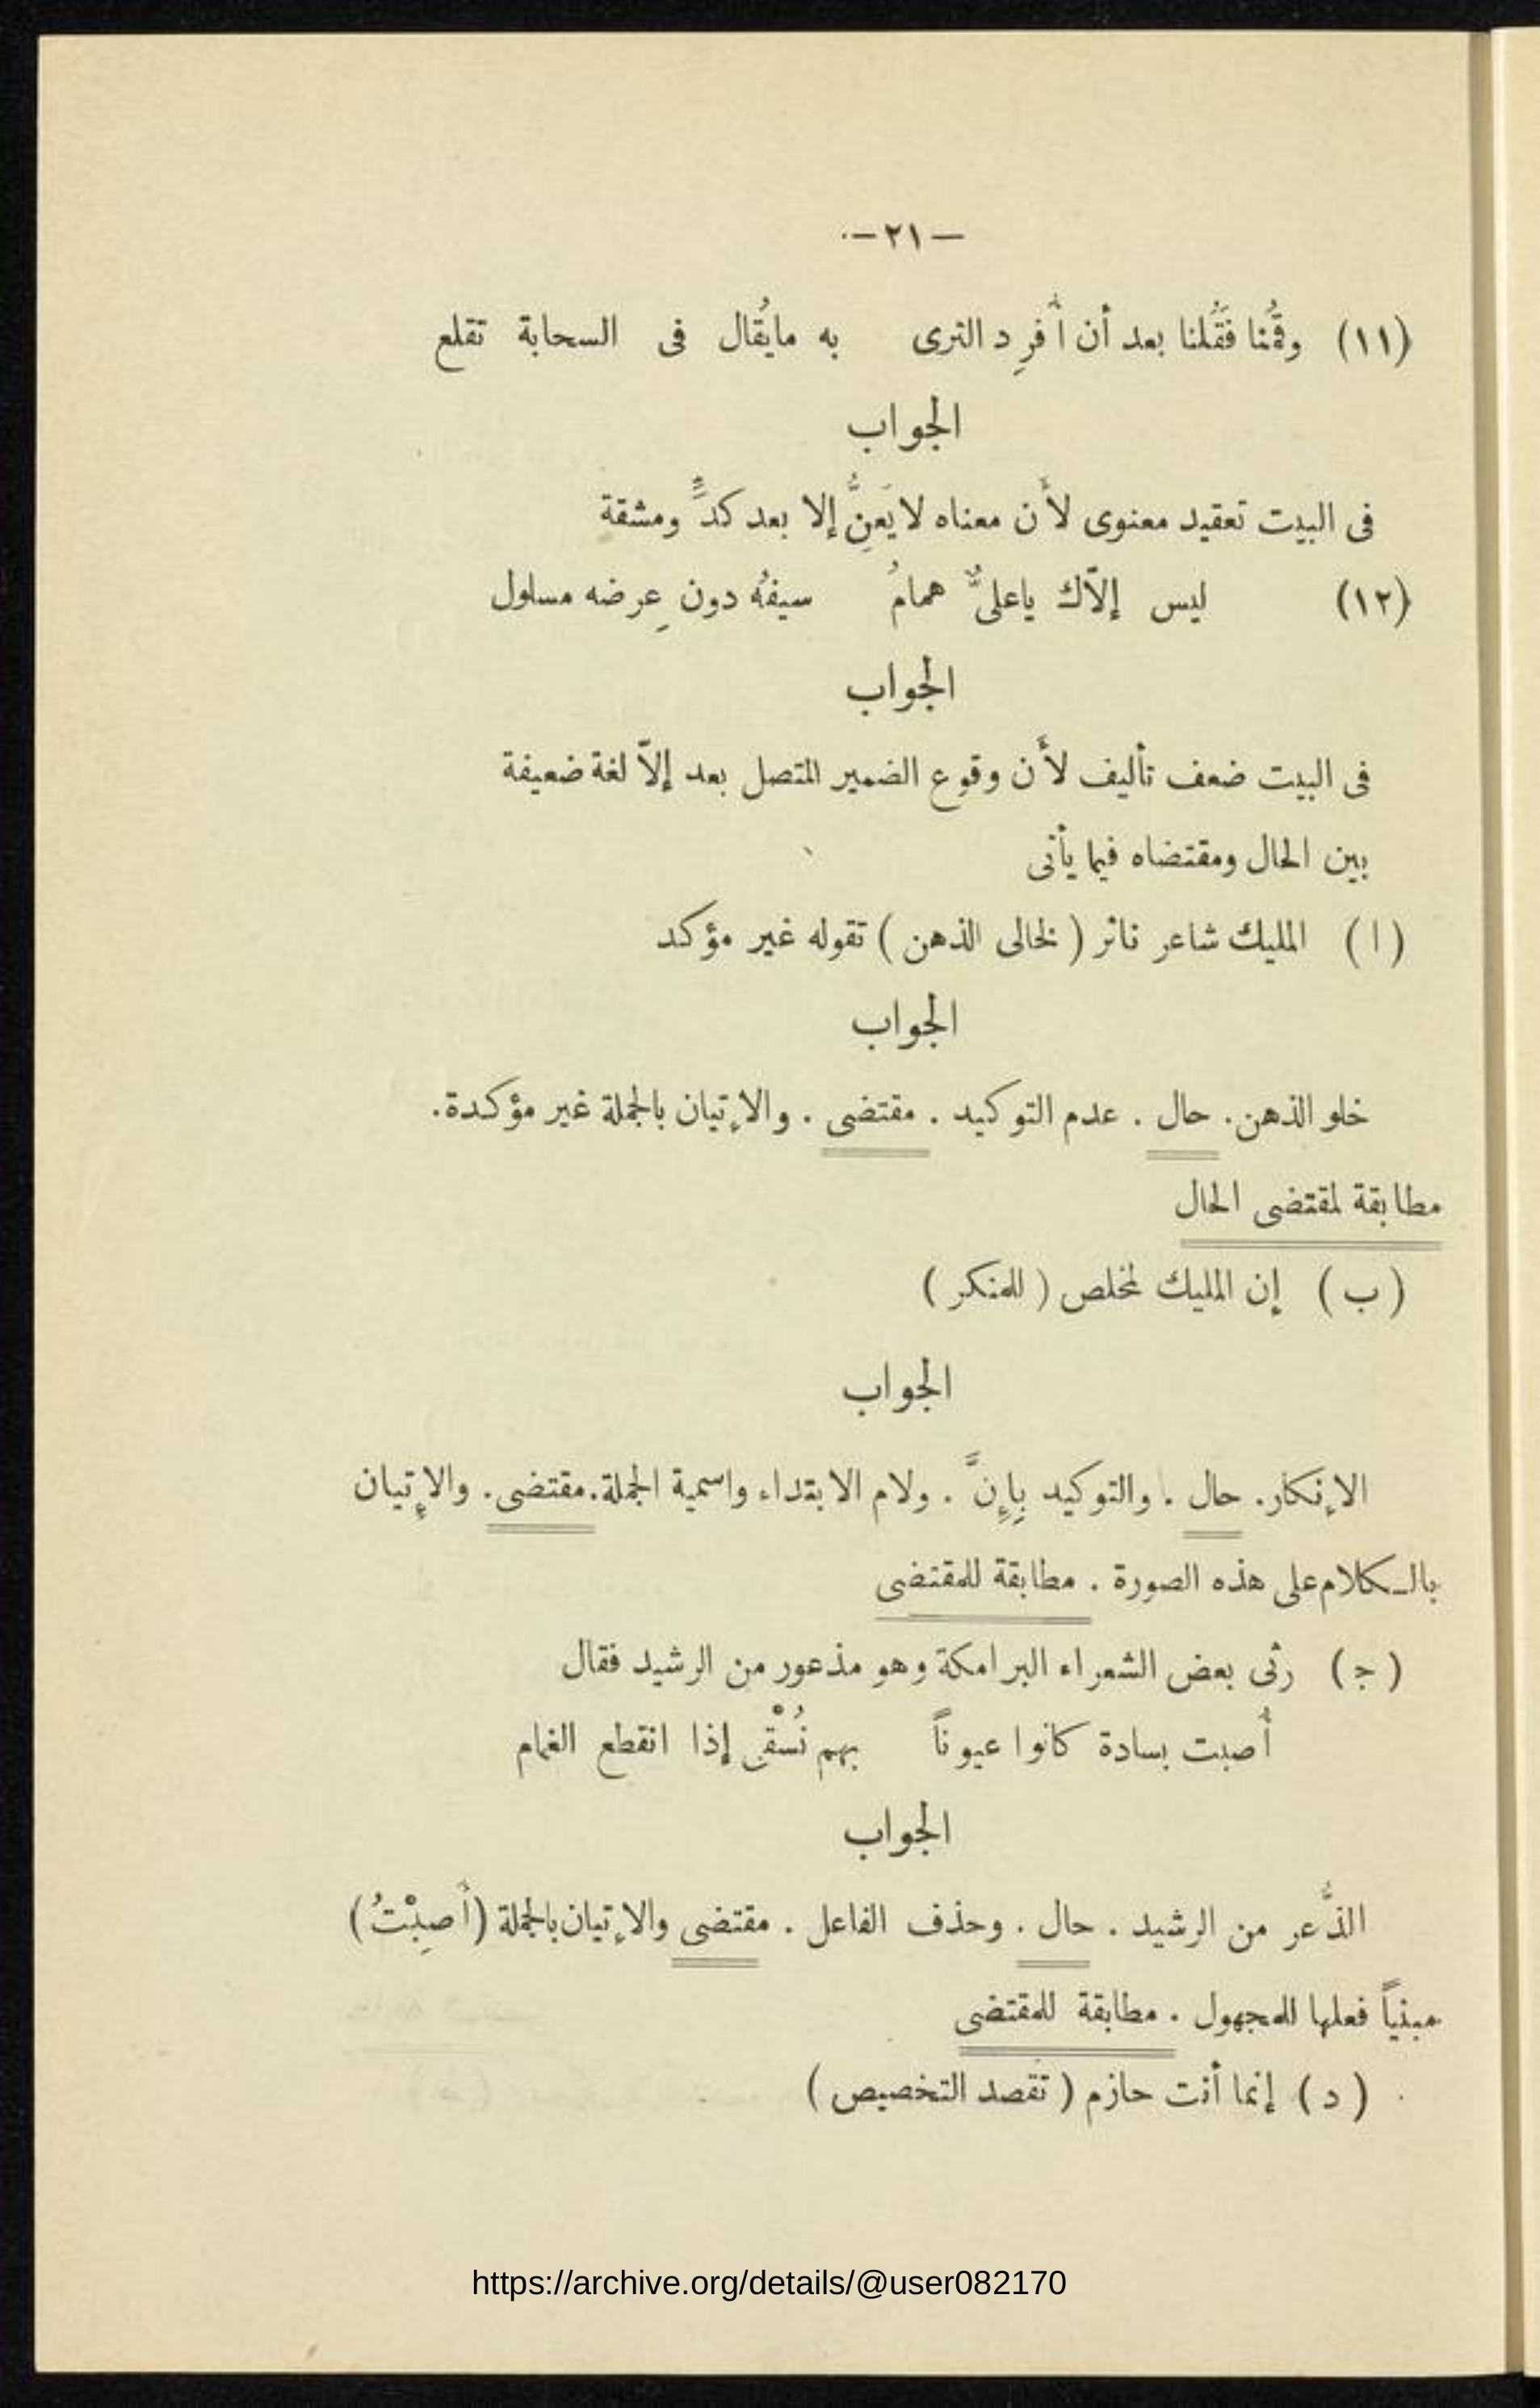 — ٢١ —
(١١) وقُمْنا فَقُلنا بعد أن أُفرِد الثرى به مايُقال فى السحابة تقلع
الجواب
فى البيت تعقيد معنوى لأَن معناه لا يَعِنُّ إلا بعد كدٍّ ومشقة
(١٢) ليس إلاّك ياعلىٌّ همامُ سيفُه دون عِرضه مسلول
الجواب
فى البيت ضعف تأليف لأَن وقوع الضمير المتصل بعد إلاّ لغة ضعيفة
بين الحال ومقتضاه فيما يأتى
( ا ) المليك شاعر ناثر ( لخالى الذهن ) تقوله غير مؤكد
الجواب
خلو الذهن. حال . عدم التوكيد . مقتضى . والإتيان بالجملة غير مؤكدة.
مطابقة لمقتضى الحال
( ب ) إن المليك لمخلص ( للمنكر )
الجواب
الإنكار. حال . والتوكيد بِإِنَّ . ولام الابتداء واسمية الجملة. مقتضى. والإتيان
بالكلام على هذه الصورة . مطابقة للمقتضى
( ج ) رثى بعض الشعراء البرامكة وهو مذعور من الرشيد فقال
أُصبت بسادة كانوا عيوناً بهم نُسْقَى إذا انقطع الغمام
الجواب
الذُّعر من الرشيد . حال . وحذف الفاعل . مقتضى والإتيان بالجملة (أُصِبْتُ)
مبنياً فعلها للمجهول . مطابقة للمقتضى
( د ) إنما أنت حازم ( تقصد التخصيص )
https://archive.org/details/@user082170